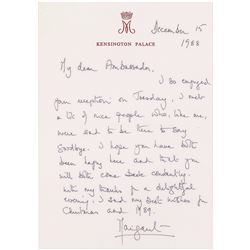 December 15
1988
KENSINGTON PALACE
My dear Ambassador,
I so enjoyed
your reception on Tuesday, I met
a lot of nice people who, like me,
were sad to be there to say
Goodbye. I hope you have both
been happy here and that you
will both come back constantly.
With my thanks for a delightful
evening, I send my best wishes for
Christmas and 1989.
Margaret